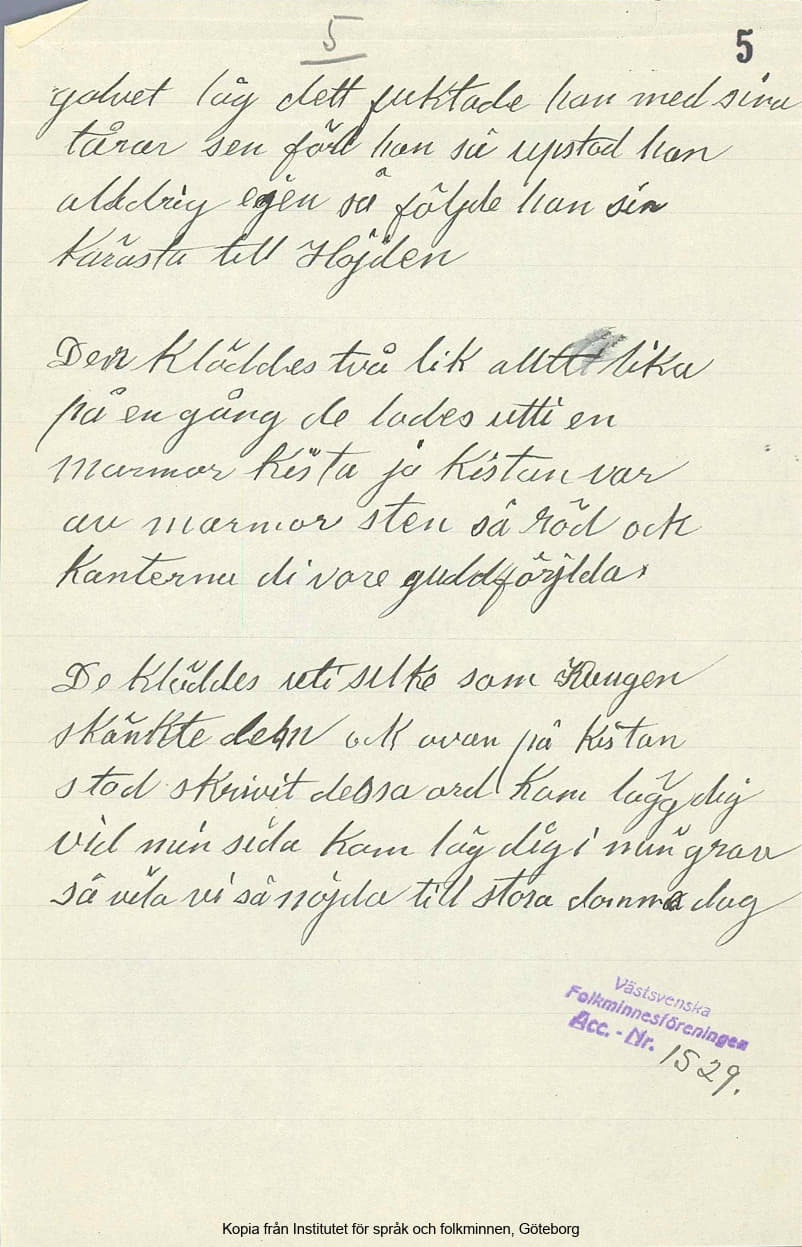 5
5
golvet låg dett fuktade han med sina
tårar sen föll han så upstod han
alldrig egen så följde han sin
Kärasta till Höjden
Den Kläddes två lik allt lika
på en gång de lades utti en
marmor Kista ja Kistan var
av marmor sten så röd ock
Kanterna di vore guddförjlda
De Kläddes uti silke som Kungen
skänkte dem ock ovan på Kistan
stod skrivit dessa ord Kom lägg dig
vid min sida Kom läg dig i min grav
så vila vi så nöjda till stora domma dag
Västsvenska
Folkminnesföreningen
Acc. - Nr. 1529.
Kopia från Institutet för språk och folkminnen, Göteborg